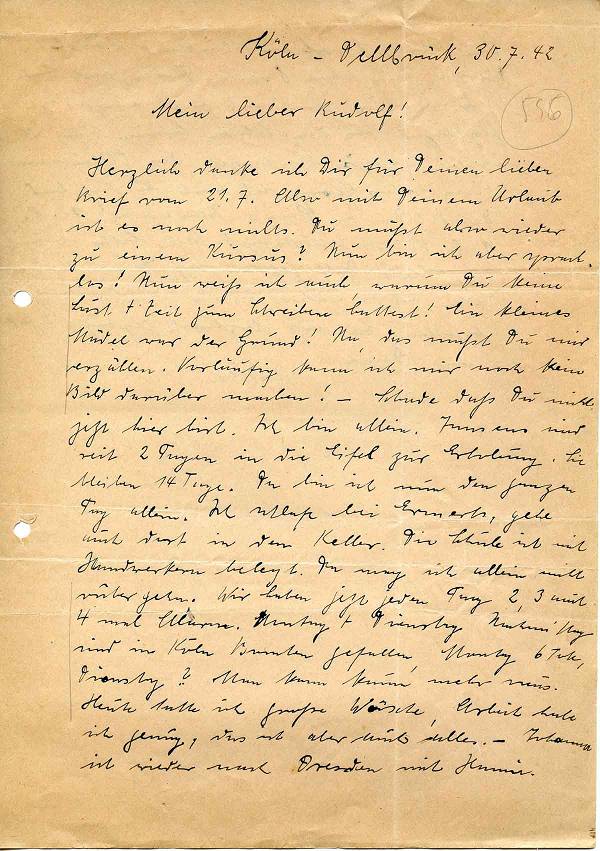 Köln - Dellbrück, 30.7.42
596
Mein lieber Rudolf!
Herzlich danke ich Dir für Deinen lieben
Brief vom 21.7. Also mit Deinem Urlaub
ist es noch nichts. Du mußt also wieder
zu einem Kursus? Nun bin ich aber sprach-
los! Nun weiß ich auch, warum Du keine
Lust + Zeit zum Schreiben hattest! Ein kleines
Mädel war der Grund! Na, das mußt Du mir
erzählen. Vorläufig kann ich mir noch kein
Bild darüber machen! - Schade daß Du nicht
jetzt hier bist. Ich bin allein. sind
seit 2 Tagen in die Eifel zur Erholung. Sie
bleiben 14 Tage. Da bin ich nun den ganzen
Tag allein. Ich schlafe bei, gehe
auch dort in den Keller. Die Schule ist mit
Handwerkern belegt. Da mag ich allein nicht
rüber gehen. Wir haben jetzt jeden Tag 2, 3 auch
4 mal Alarm. Montag + Dienstag
sind in Köln Bomben gefallen, Montag 6 Tote,
Dienstag? Man kann kaum mehr raus.
Heute hatte ich große Wäsche, Arbeit habe
ich genug, das ist aber auch alles. -
ist wieder nach Dresden mit